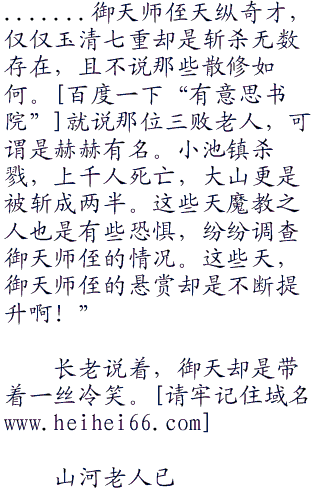 .......御天师侄天纵奇才，
仅仅玉清七重却是斩杀无数
存在，且不说那些散修如
何。[百度一下“有意思书
院”]就说那位三败老人，可
谓是赫赫有名。小池镇杀
戮，上千人死亡，大山更是
被斩成两半。这些天魔教之
人也是有些恐惧，纷纷调查
御天师侄的情况。这些天，
御天师侄的悬赏却是不断提
升啊！”
长老说着，御天却是带
着一丝冷笑。[请牢记住域名
www.heihei66.com]
山河老人已